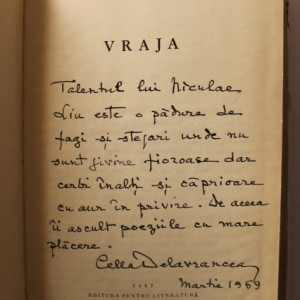 VRAJA
Talentul lui Niculae
Liu este o pădure de
fagi și stejari unde nu
sunt jivine fioroase dar
cerbi înalți și căprioare
cu aur în privire. De aceea
îi ascult poeziile cu mare
plăcere.
Cella Delavrancea
Martie 1969
1967
EDITURA PENTRU LITERATURĂ